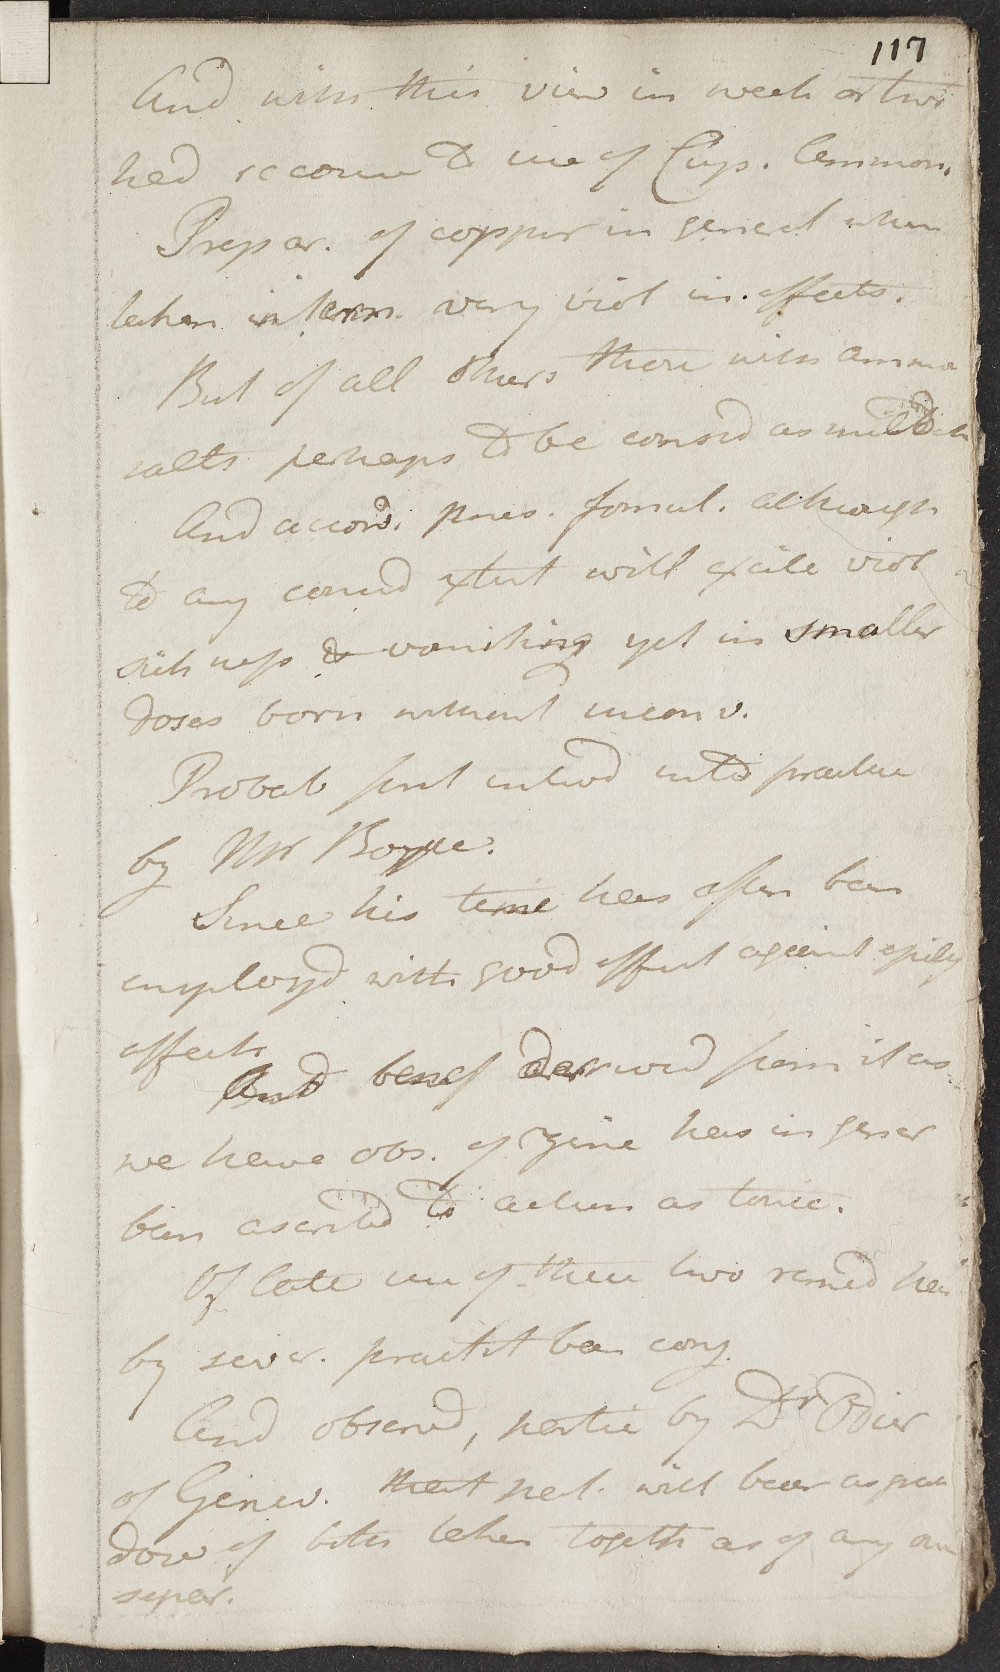 117
And with this view in week or two
had recourse to use of Cup. Ammon.
Prepar. of copper in general when
taken intern. very viol in effects.
But of all others those with ammo
salts perhaps to be consid as mildest
And accord. pres. formul. although
to any consid extent will excite viol
sickness & vomiting yet in smaller
doses born without inconv.
Probab first introd into practice
by Mr Boyle.
Since his time has often been
employd with good effect against epilep
affects
And benef derived from it as
we have obs. of Zinc has in gener
been ascribd to action as tonic.
Of late use of these two remed has
by sever. practit been conj.
And observd, partic by Dr Odier
of Genev. that pat. will bear as great
dose of both taken togeth as of any one
separ.